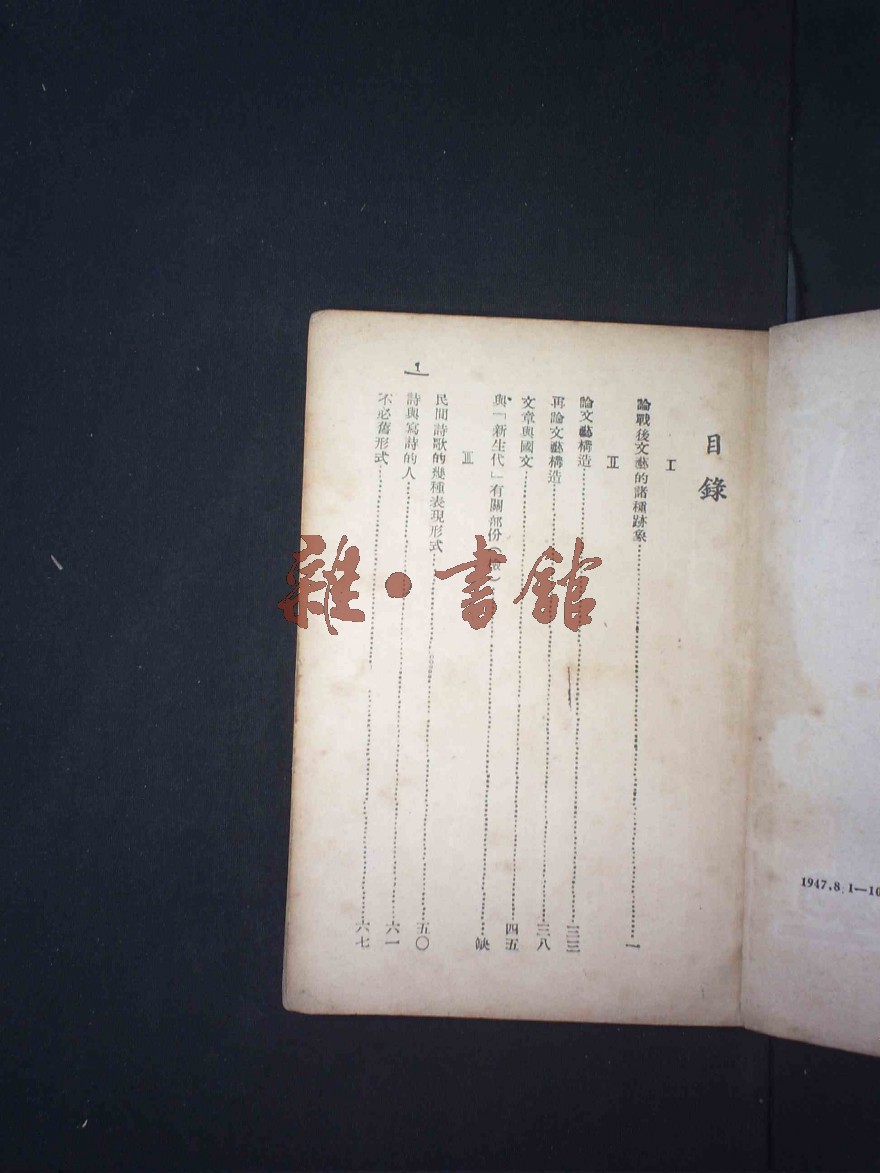 目錄
I
論戰後文藝的諸種跡象……一
II
論文藝構造……三三
再論文藝構造……三八
文章與國文……四五
與「新生代」有關部份(……缺
III
民間詩歌的幾種表現形式……五〇
詩與寫詩的人……六一
不必舊形式……六七
1
1947.8.1—10
雜·書館